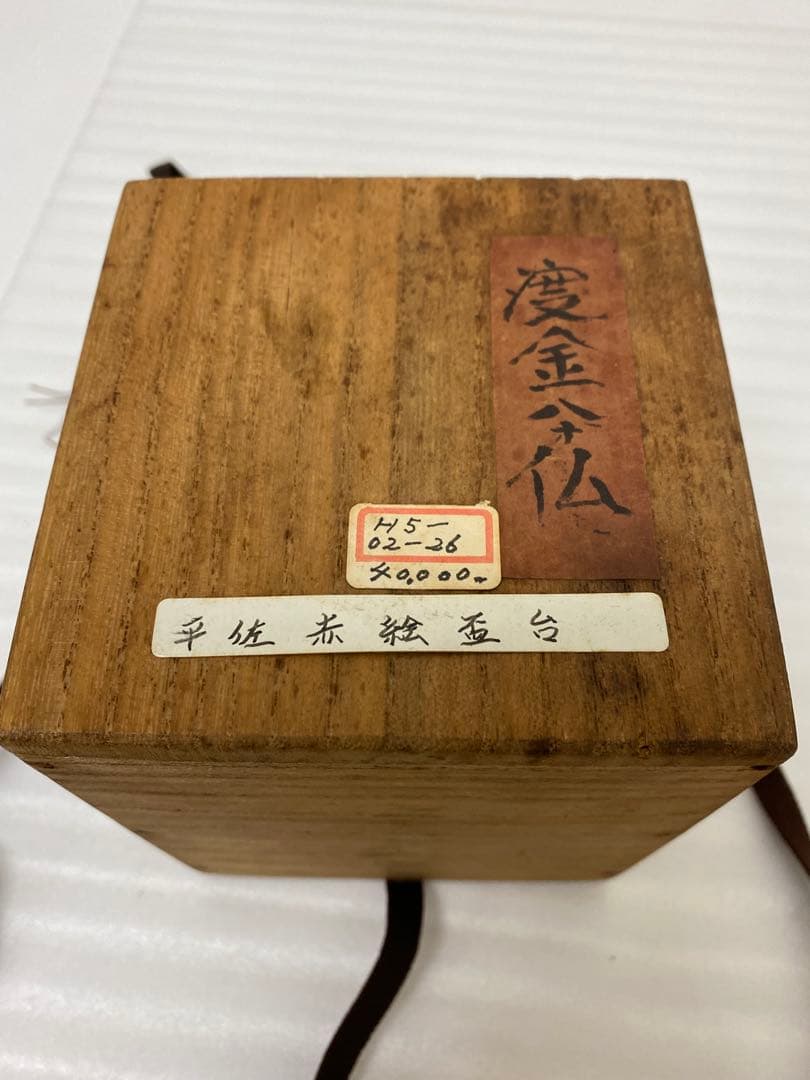 度金八才仏
H5-
02-26
40,000-
平佐赤絵盃台